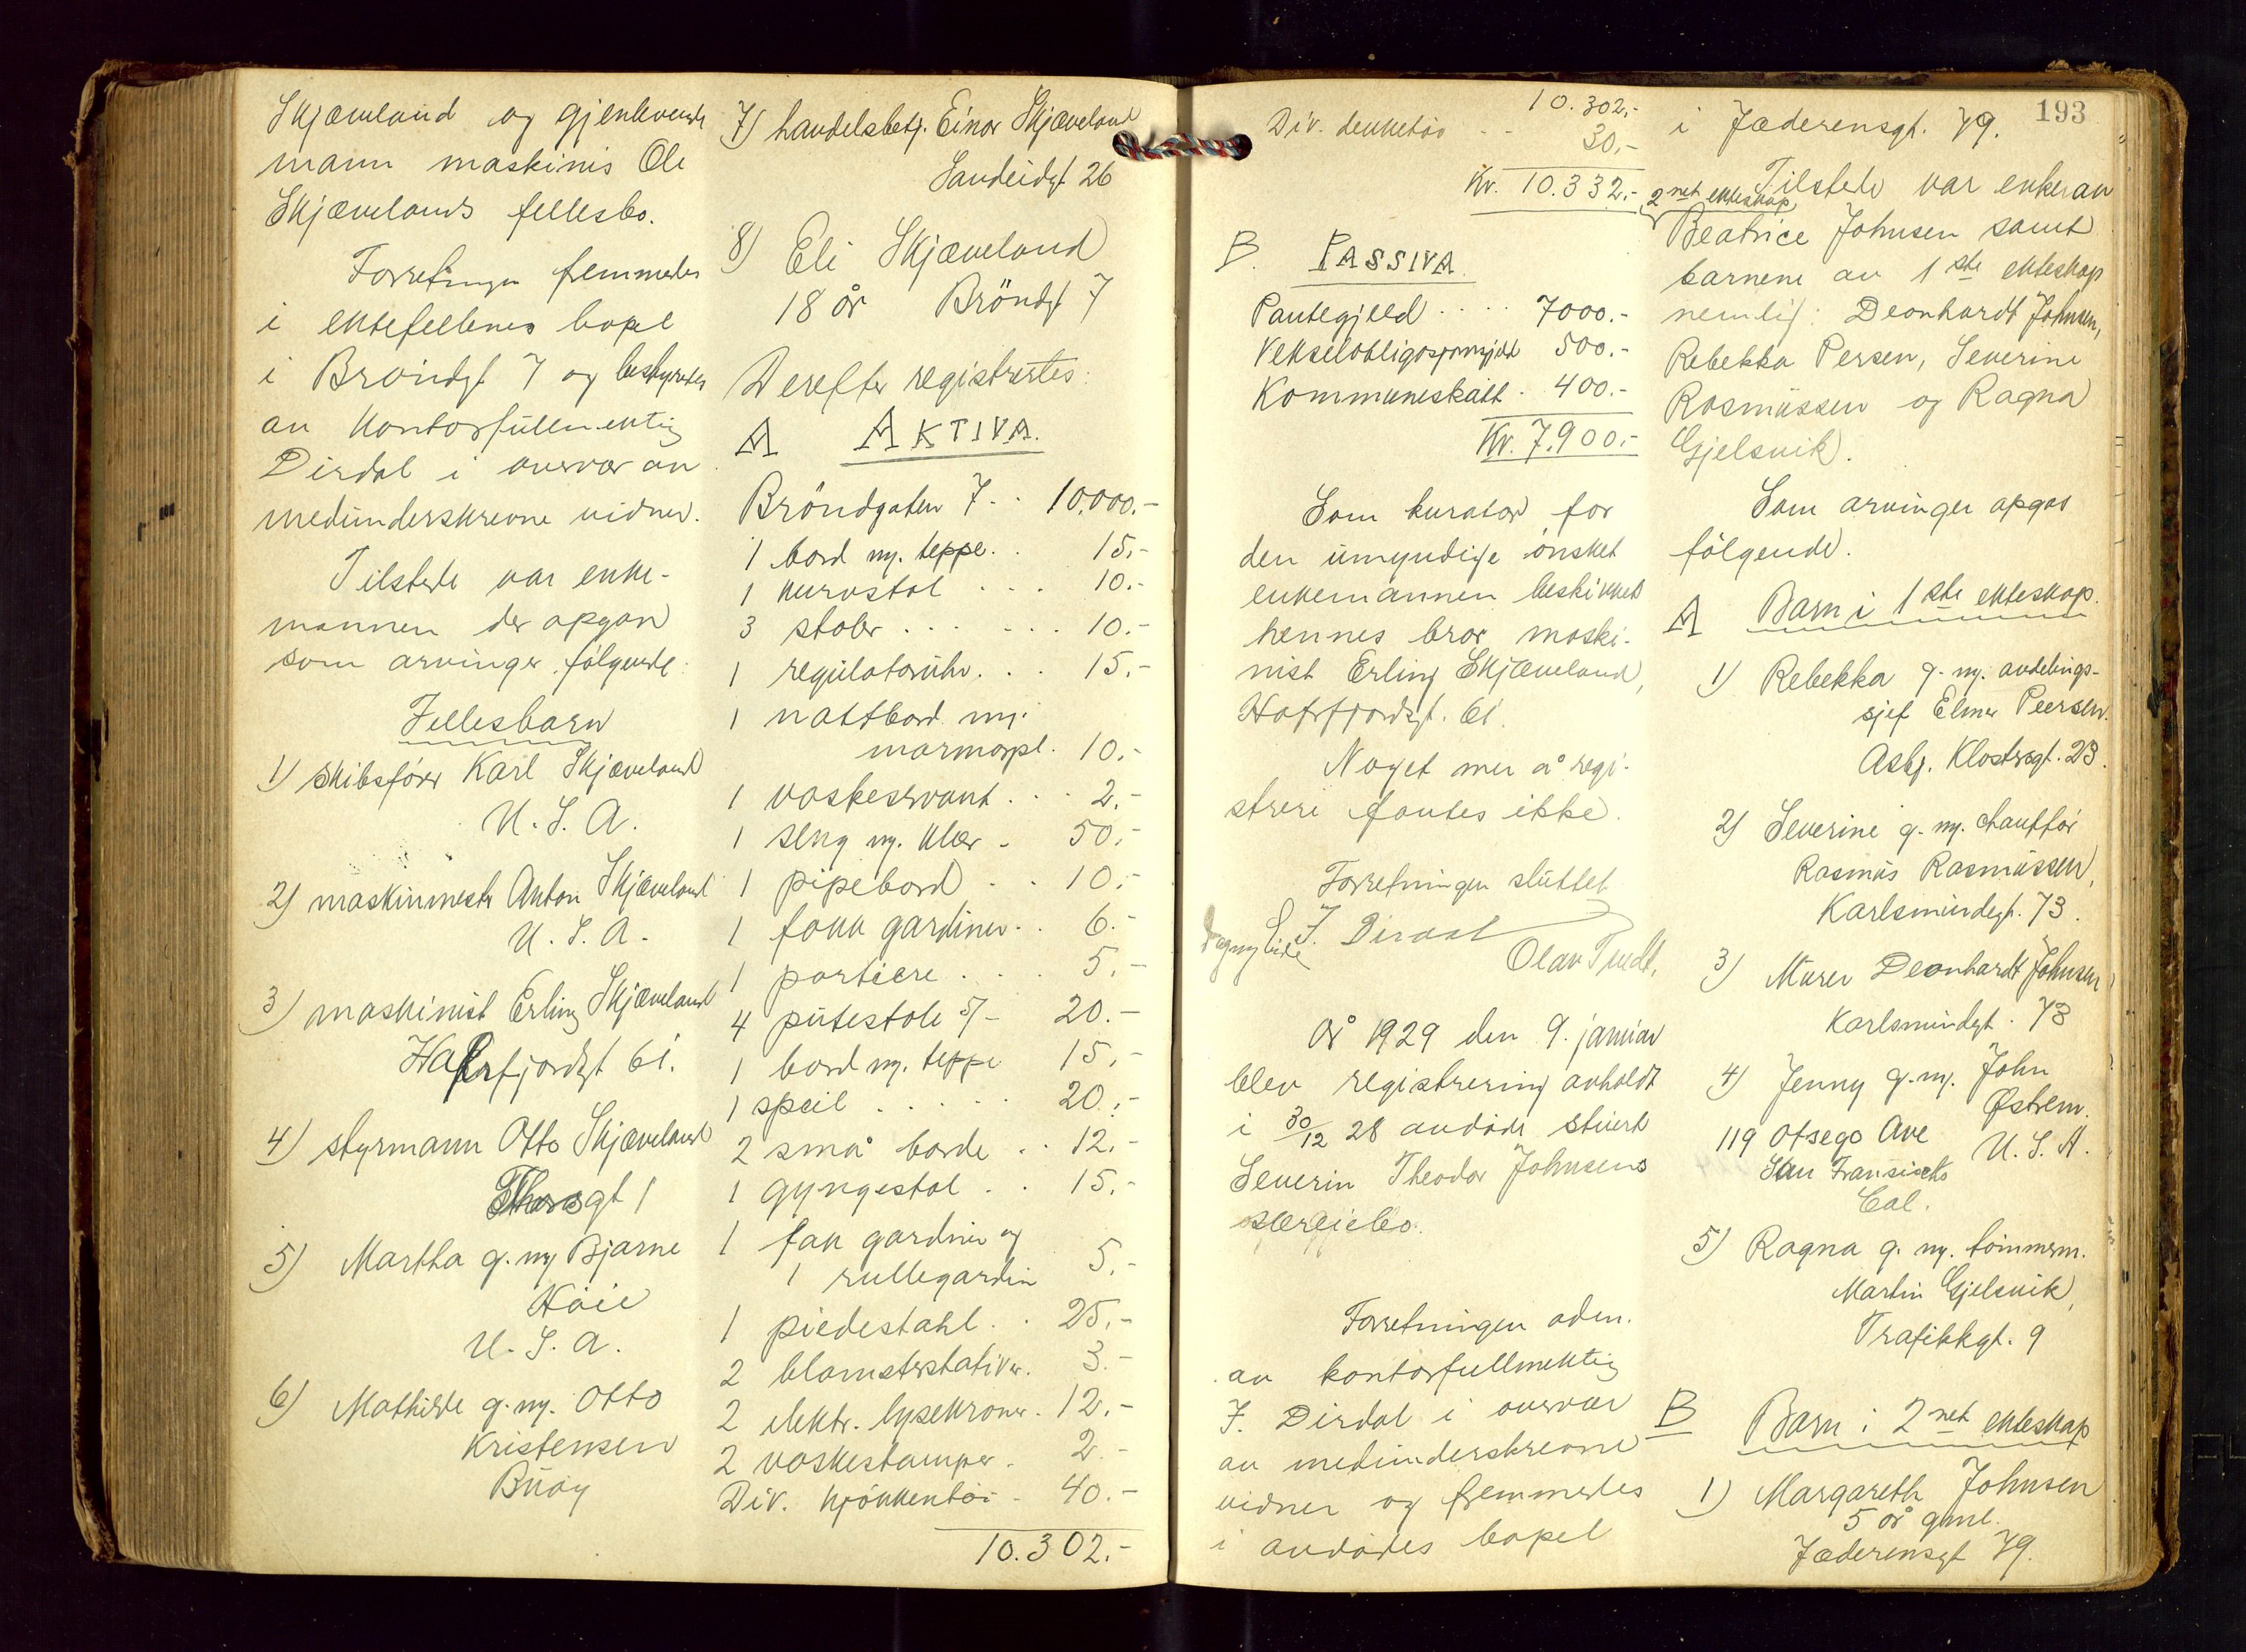 Skjæveland og gjenlevende
mann maskinis Ole
Skjævelands fellesbo.
Forretingen fremmedes
i ektefellenes bopel
i Bröndgt 7 og bestyredes
av kontorfullmektig
Dirdal i overvær av
medunderskrevne vidner.
Tilstede var enke-
mannen der opgav
som arvinger følgende:
Fellesbarn
1) skibsfører Karl Skjæveland
U. S. A.
2) maskinmester Anton Skjæveland
U. S. A.
3) maskinist Erling Skjæveland
Hafrsfjordgt 61.
4) styrmann Otto Skjæveland
gt 1
5) Martha g. m. Bjarne
Høie
U. S. A.
6) Mathilde g. m. Otto
Kristensen
Buøy
7) handelsbetj. Einar Skjæveland
Sandeidgt 26
8) Eli Skjæveland
18 år Bröndgt 7
Derefter registrertes:
A AKTIVA.
Bröndgaten 7 . . 10.000.-
1 bord m. teppe . . 15.-
1 kurvstol . . . 10.-
3 stoler . . . . . . 10.-
1 regulatoruhr . . . 15.-
1 nattbord m.
marmorpl. 10.-
1 vaskeservant . . . 2.-
1 seng m. klær - 50.-
1 pipebord . . 10.-
1 fakk gardiner . . 6.-
1 portiere . . . 5.-
4 putestole 5/- 20.-
1 bord m. teppe 15.-
1 speil . . . . . 20.-
2 små borde . . 12.-
1 gyngestol . . 15.-
1 fak gardiner og
1 rullegardin 5.-
1 piedestahl . . 25.-
2 blomsterstativer. 3.-
2 elektr. lysekroner. 12.-
2 vaskestamper . 2.-
Div. kjökkentöi - 40.-
10.302.-
10.302.-
Div. dekketöi . . 30.-
Kr. 10.332.-
B. PASSIVA.
Pantegjeld . . . . 7000.-
Vekselobligasjonsgjeld 500.-
Kommuneskatt . 400.-
Kr. 7.900.-
Som kurator for
den umyndige ønsket
enkemannen beskikket
hennes bror, maski-
nist Erling Skjæveland,
Hafrsfjordgt. 61.
Noget mer å regi-
strere fantes ikke.
Forretningen sluttet
J. Dirdal
Dagny Eide
Olav Tvedt.
År 1929 den 9. januar
blev registrering avholdt
i 30/12 28 avdøde stuert
Severin Theodor Johnsens
særeiebo.
Forretningen adm.
av kontorfullmektig
J. Dirdal i overvær
av medunderskrevne
vidner og fremmedes
i avdødes bopel
193
i Jæderensgt. 79.
Tilstede var enken av
2net ekteskap
Beatrice Johnsen samt
barnene av 1ste ekteskap
nemlig: Deonhardt Johnsen,
Rebekka Persen, Severine
Rasmussen og Ragna
Gjelsvik.
Som arvinger opgas
følgende.
A Barn i 1ste ekteskap.
1) Rebekka g. m. avdelings-
sjef Elmer Peersen.
Asbj. Klostersgt. 23.
2) Severine g. m. chauffør
Rasmus Rasmussen,
Karlsmindegt. 73.
3) Murer Deonhardt Johnsen
Karlsmindegt. 73
4) Jenny g. m. John
Østrem.
119 Otsego Ave U. S. A.
San Fransisko
Cal.
5) Ragna g. m. tømmerm.
Martin Gjelsvik,
Trafikkgt. 9
B Barn i 2net ekteskap
1) Margareth Johnsen
5 år gml.
Jæderensgt 79.